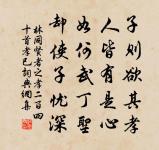 子則欲其孝
人皆有是心
如何武丁聖
却使子忱深
林同賢者之孝二百四
十首孝己詞典網集